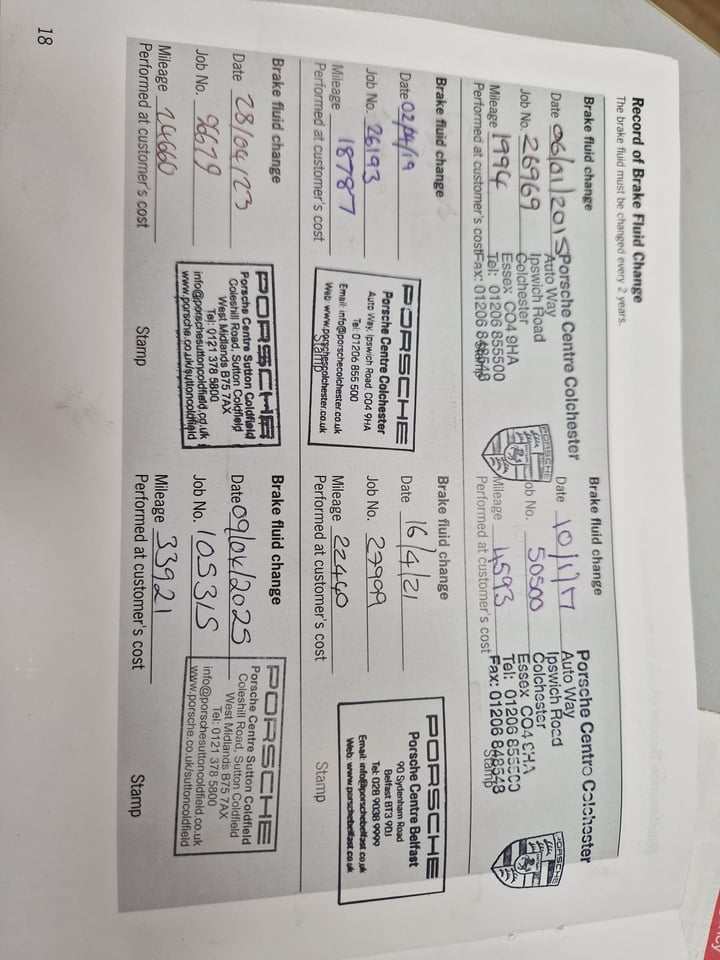 Record of Brake Fluid Change
The brake fluid must be changed every 2 years.
Brake fluid change
Date 06/01/2015
Job No. 26969
Mileage 1994
Performed at customer's cost
Porsche Centre Colchester
Auto Way
Ipswich Road
Colchester
Essex CO4 9HA
Tel: 01206 855500
Fax: 01206 848548
Stamp
PORSCHE
Brake fluid change
Date 10/1/17
Job No. 50500
Mileage 4593
Performed at customer's cost
Porsche Centre Colchester
Auto Way
Ipswich Road
Colchester
Essex CO4 9HA
Tel: 01206 855500
Fax: 01206 848548
Stamp
PORSCHE
Brake fluid change
Date 02/04/19
Job No. 26193
Mileage 18787
Performed at customer's cost
PORSCHE
Porsche Centre Colchester
Auto Way, Ipswich Road, CO4 9HA
Tel: 01206 855 500
Email: info@porschecolchester.co.uk
Web: www.porschecolchester.co.uk
Stamp
Brake fluid change
Date 16/4/21
Job No. 27999
Mileage 22440
Performed at customer's cost
PORSCHE
Porsche Centre Belfast
90 Sydenham Road
Belfast BT3 9DJ
Tel: 028 9038 9999
Email: info@porschebelfast.co.uk
Web: www.porschebelfast.co.uk
Stamp
Brake fluid change
Date 28/04/23
Job No. 96679
Mileage 24660
Performed at customer's cost
PORSCHE
Porsche Centre Sutton Coldfield
Coleshill Road, Sutton Coldfield
West Midlands B75 7AX
Tel: 0121 378 5800
info@porschesuttoncoldfield.co.uk
www.porsche.co.uk/suttoncoldfield
Stamp
Brake fluid change
Date 09/04/2025
Job No. 105315
Mileage 33921
Performed at customer's cost
PORSCHE
Porsche Centre Sutton Coldfield
Coleshill Road, Sutton Coldfield
West Midlands B75 7AX
Tel: 0121 378 5800
info@porschesuttoncoldfield.co.uk
www.porsche.co.uk/suttoncoldfield
Stamp
18